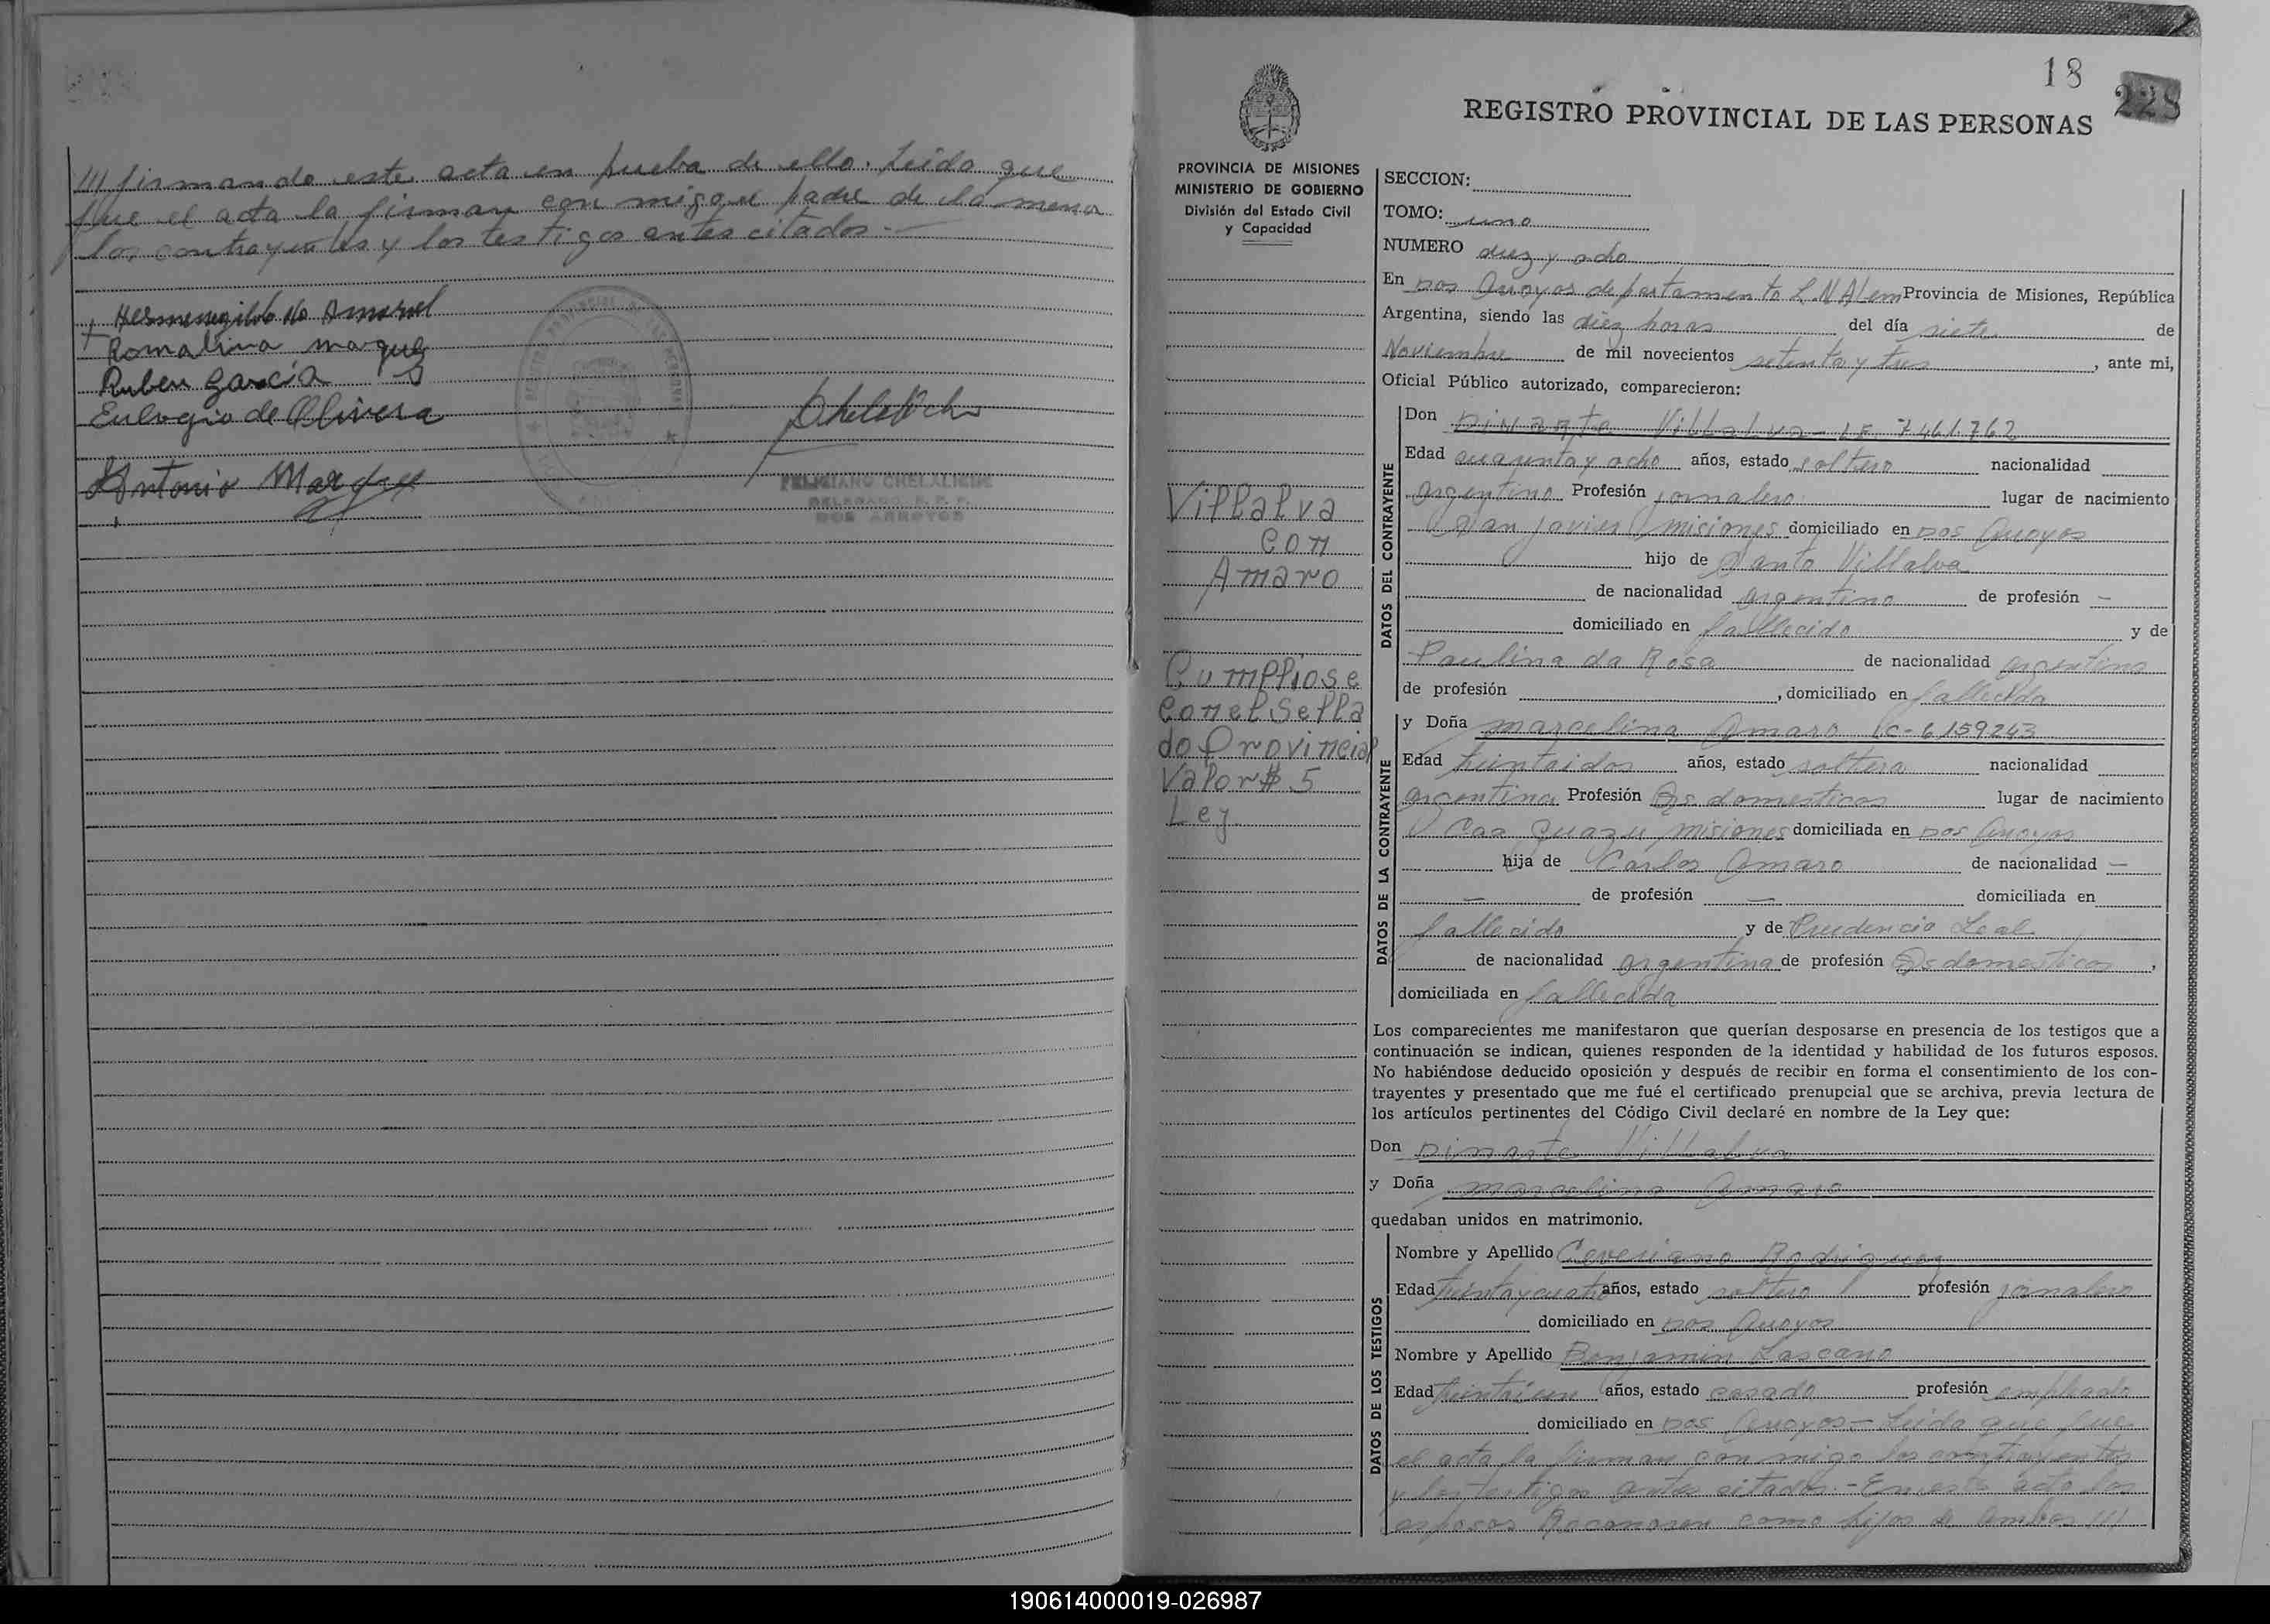 /// firmando este acta en prueba de ello. Leida que
fue el acta la firman con migo el padre de la menor
los contrayentes y los testigos antes citados.-
Romalina marquez
Ruben Garcia
Eulogio de Olivera
Antonio Marquez
FELICIANO CHELALICHE
DOS ARROYOS
18
228
REGISTRO PROVINCIAL DE LAS PERSONAS
PROVINCIA DE MISIONES
MINISTERIO DE GOBIERNO
División del Estado Civil
y Capacidad
Villalva
con
Amaro
Cumpliose
con el Sella
do Provincial
Valor $ 5
Ley
SECCION:
TOMO: uno
NUMERO diez y ocho
En Dos Arroyos departamento L.N Alem Provincia de Misiones, República
Argentina, siendo las diez horas del día siete de
Noviembre de mil novecientos setenta y tres, ante mi,
Oficial Público autorizado, comparecieron:
DATOS DEL CONTRAYENTE
Don Dinarte Villalva - LE 7461.762
Edad cuarenta y ocho años, estado soltero nacionalidad
argentino Profesión jornalero lugar de nacimiento
San Javier misiones domiciliado en Dos Arroyos
hijo de Santo Villalva
de nacionalidad argentino de profesión -
domiciliado en fallecido y de
Paulina da Rosa de nacionalidad argentina
de profesión , domiciliado en fallecida
DATOS DE LA CONTRAYENTE
y Doña marcelina Amaro LC- 6.159243
Edad treintaidos años, estado soltera nacionalidad
argentina Profesión Qs domesticos lugar de nacimiento
Caa Guazu misiones domiciliada en Dos Arroyos
hija de Carlos Amaro de nacionalidad -
- de profesión - domiciliada en
fallecido y de Prudencia Leal
de nacionalidad argentina de profesión Qs domesticos ,
domiciliada en fallecida
Los comparecientes me manifestaron que querían desposarse en presencia de los testigos que a
continuación se indican, quienes responden de la identidad y habilidad de los futuros esposos.
No habiéndose deducido oposición y después de recibir en forma el consentimiento de los con-
trayentes y presentado que me fué el certificado prenupcial que se archiva, previa lectura de
los artículos pertinentes del Código Civil declaré en nombre de la Ley que:
Don Dinarte Villalva
y Doña marcelina Amaro
quedaban unidos en matrimonio.
DATOS DE LOS TESTIGOS
Nombre y Apellido Ceveriano Rodriguez
Edad treintaycuatro años, estado soltero profesión jornalero
domiciliado en Dos Arroyos
Nombre y Apellido Benjamin Lascano
Edad treintaiun años, estado casado profesión empleado
domiciliado en Dos Arroyos - Leida que fue
el acta la firman con migo los contrayentes
y los testigos antes citados. - En este acto los
esposos Reconosen como hijos de ambos ///
190614000019-026987